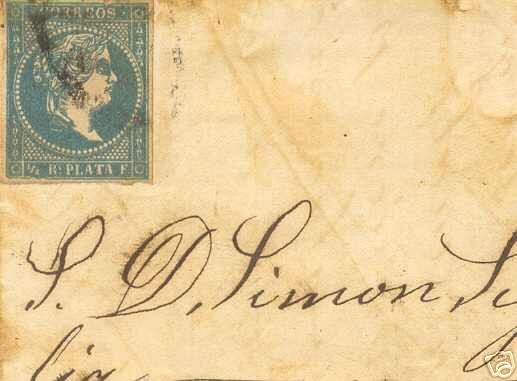 CORREOS
½ Rl. PLATA F.
S. D. Simon